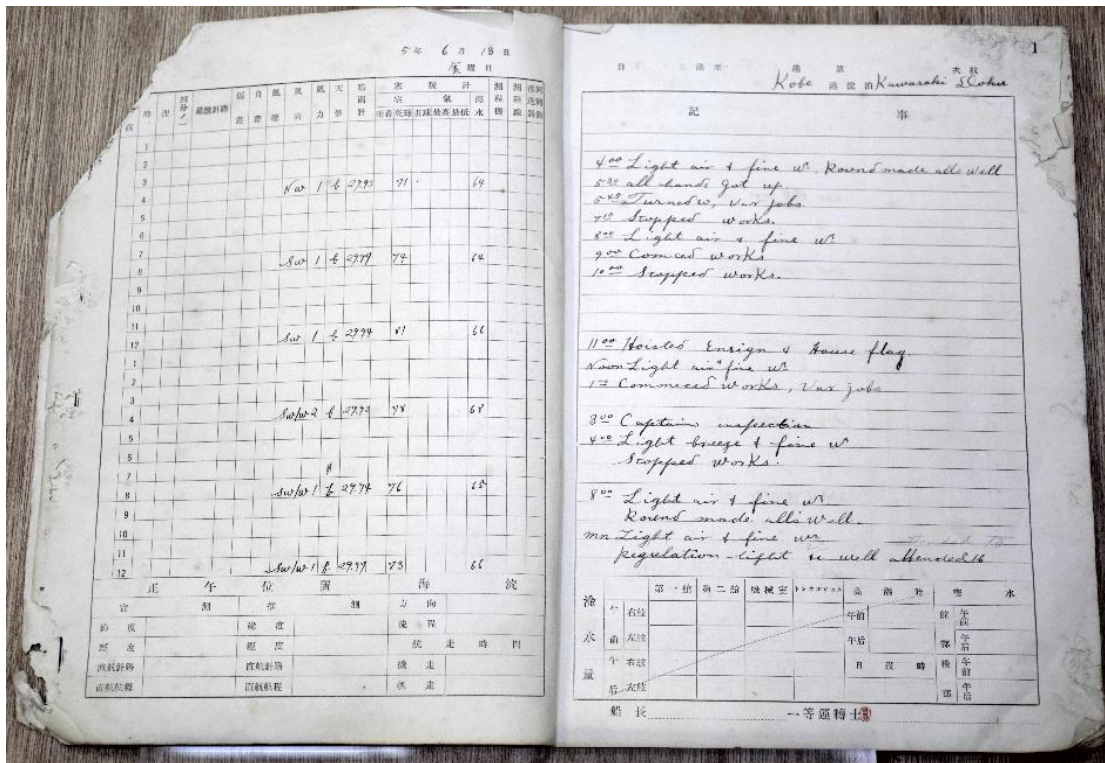 5年 6月 18日
金曜日
時
風向
風力
天候
晴雨計
寒暖計
空氣
海水
乾球 湿球 最高 最低
1
3
NW 1 b 29.95 71 64
4
5
6
7
SW 1 b 29.99 74 64
8
9
10
11
SW 1 b 29.94 81 66
12
1
2
3
4
SW/W 2 b 29.95 78 68
5
6
7
8
SW/W 1 b 29.94 76 65
9
10
11
12
SW/W 1 b 29.99 73 66
正午位置
海流
實測
推測
方向
緯度
緯度
流程
經度
經度
航走時間
直航針路
直航針路
機走
直航航程
直航航程
帆走
1
自 港至 港 第 次航
Kobe 港碇泊 Kawasaki
記事
4 00 Light air & fine wr. Round made alls well
5 30 all hands got up.
5 45 Turned w, var jobs.
Stopped works.
8 00 Light air & fine wr
9 00 Comced works
10 00 Stopped works.
11 00 Hoisted Ensign & House flag.
Noon Light air & fine wr
1 00 Commeced works, Var jobs
3 00 Captain inspection
4 00 Light breeze & fine wr
Stopped works.
8 00 Light air & fine wr
Round made alls well.
mn Light air & fine wr
Regulation-light so well attended to
淡水量
第一舱 第二舱 機械室
午前 右舷
左舷
午后 右舷
左舷
高潮時
午前
午后
日没時
喫水
前部 午前
午后
後部 午前
午后
船長
一等運轉士